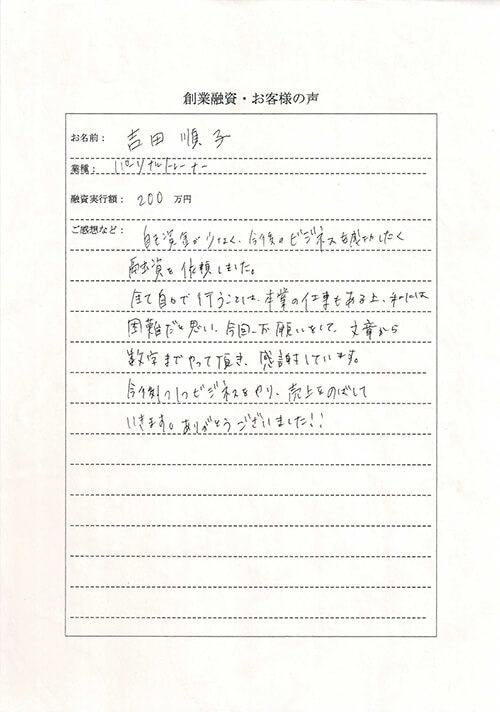 創業融資・お客様の声
お名前： 吉田 順子
業種： パーソナルトレーナー
融資実行額： 200 万円
ご感想など： 自己資金が少なく、今後のビジネスを成功したく
融資を依頼しました。
全て自力で行うことは、本業の仕事もある上、私には
困難だと思い、今回お願いをして、文章から
数字までやって頂き、感謝しています。
今後1つ1つビジネスをやり、売上をのばして
いきます。ありがとうございました!!